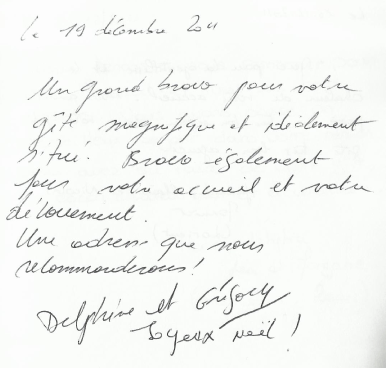 le 19 décembre 2011
Un grand bravo pour votre
gîte magnifique et idéalement
situé. Bravo également
pour votre accueil et votre
dévouement.
Une adresse que nous
recommanderons!
Delphine et Grégory
Joyeux noël!